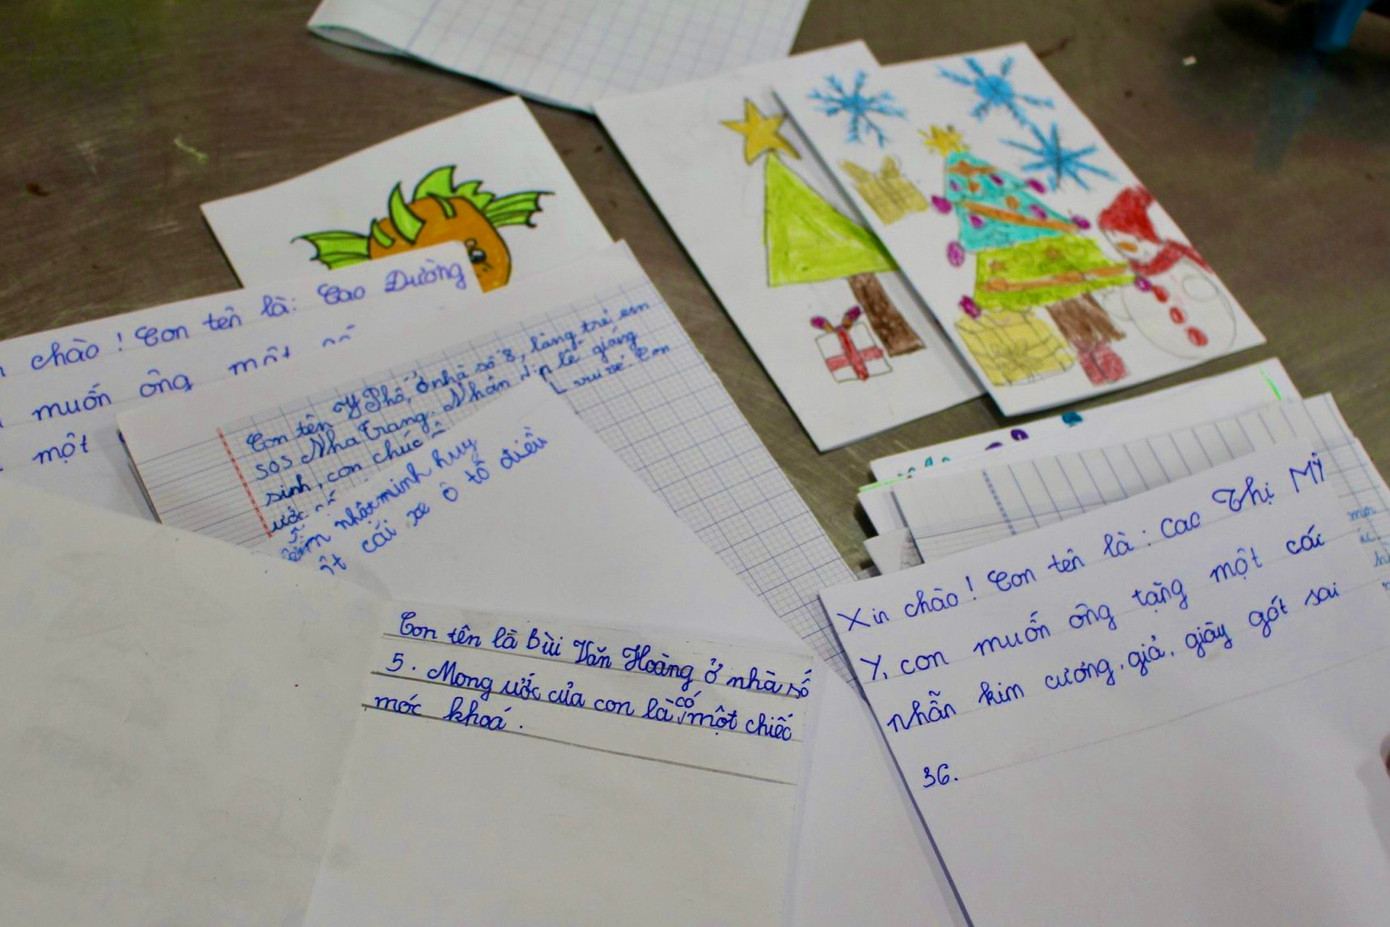 chào ! Con tên là: Cao Dường
muốn ông một
một
Con tên Y Phố, ở nhà số 8, làng trẻ em
SOS Nha Trang. Nhân lễ giáng
sinh, con chúc
ước
nhật minh huy
cái xe ô tô điều
Con tên là Bùi Văn Hoàng ở nhà số
5. Mong ước của con là có một chiếc
móc khoá.
Xin chào! Con tên là: Cao Thị Mỹ
Y, con muốn ông tặng một cái
nhẫn kim cương, giả, giày gót sai
36.